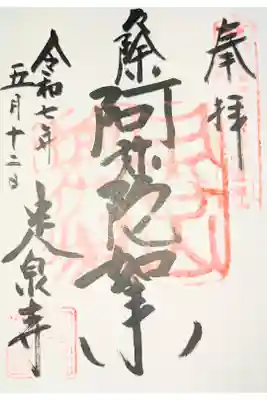 奉拝
阿弥陀如来
令和七年
五月十二日
泉寺